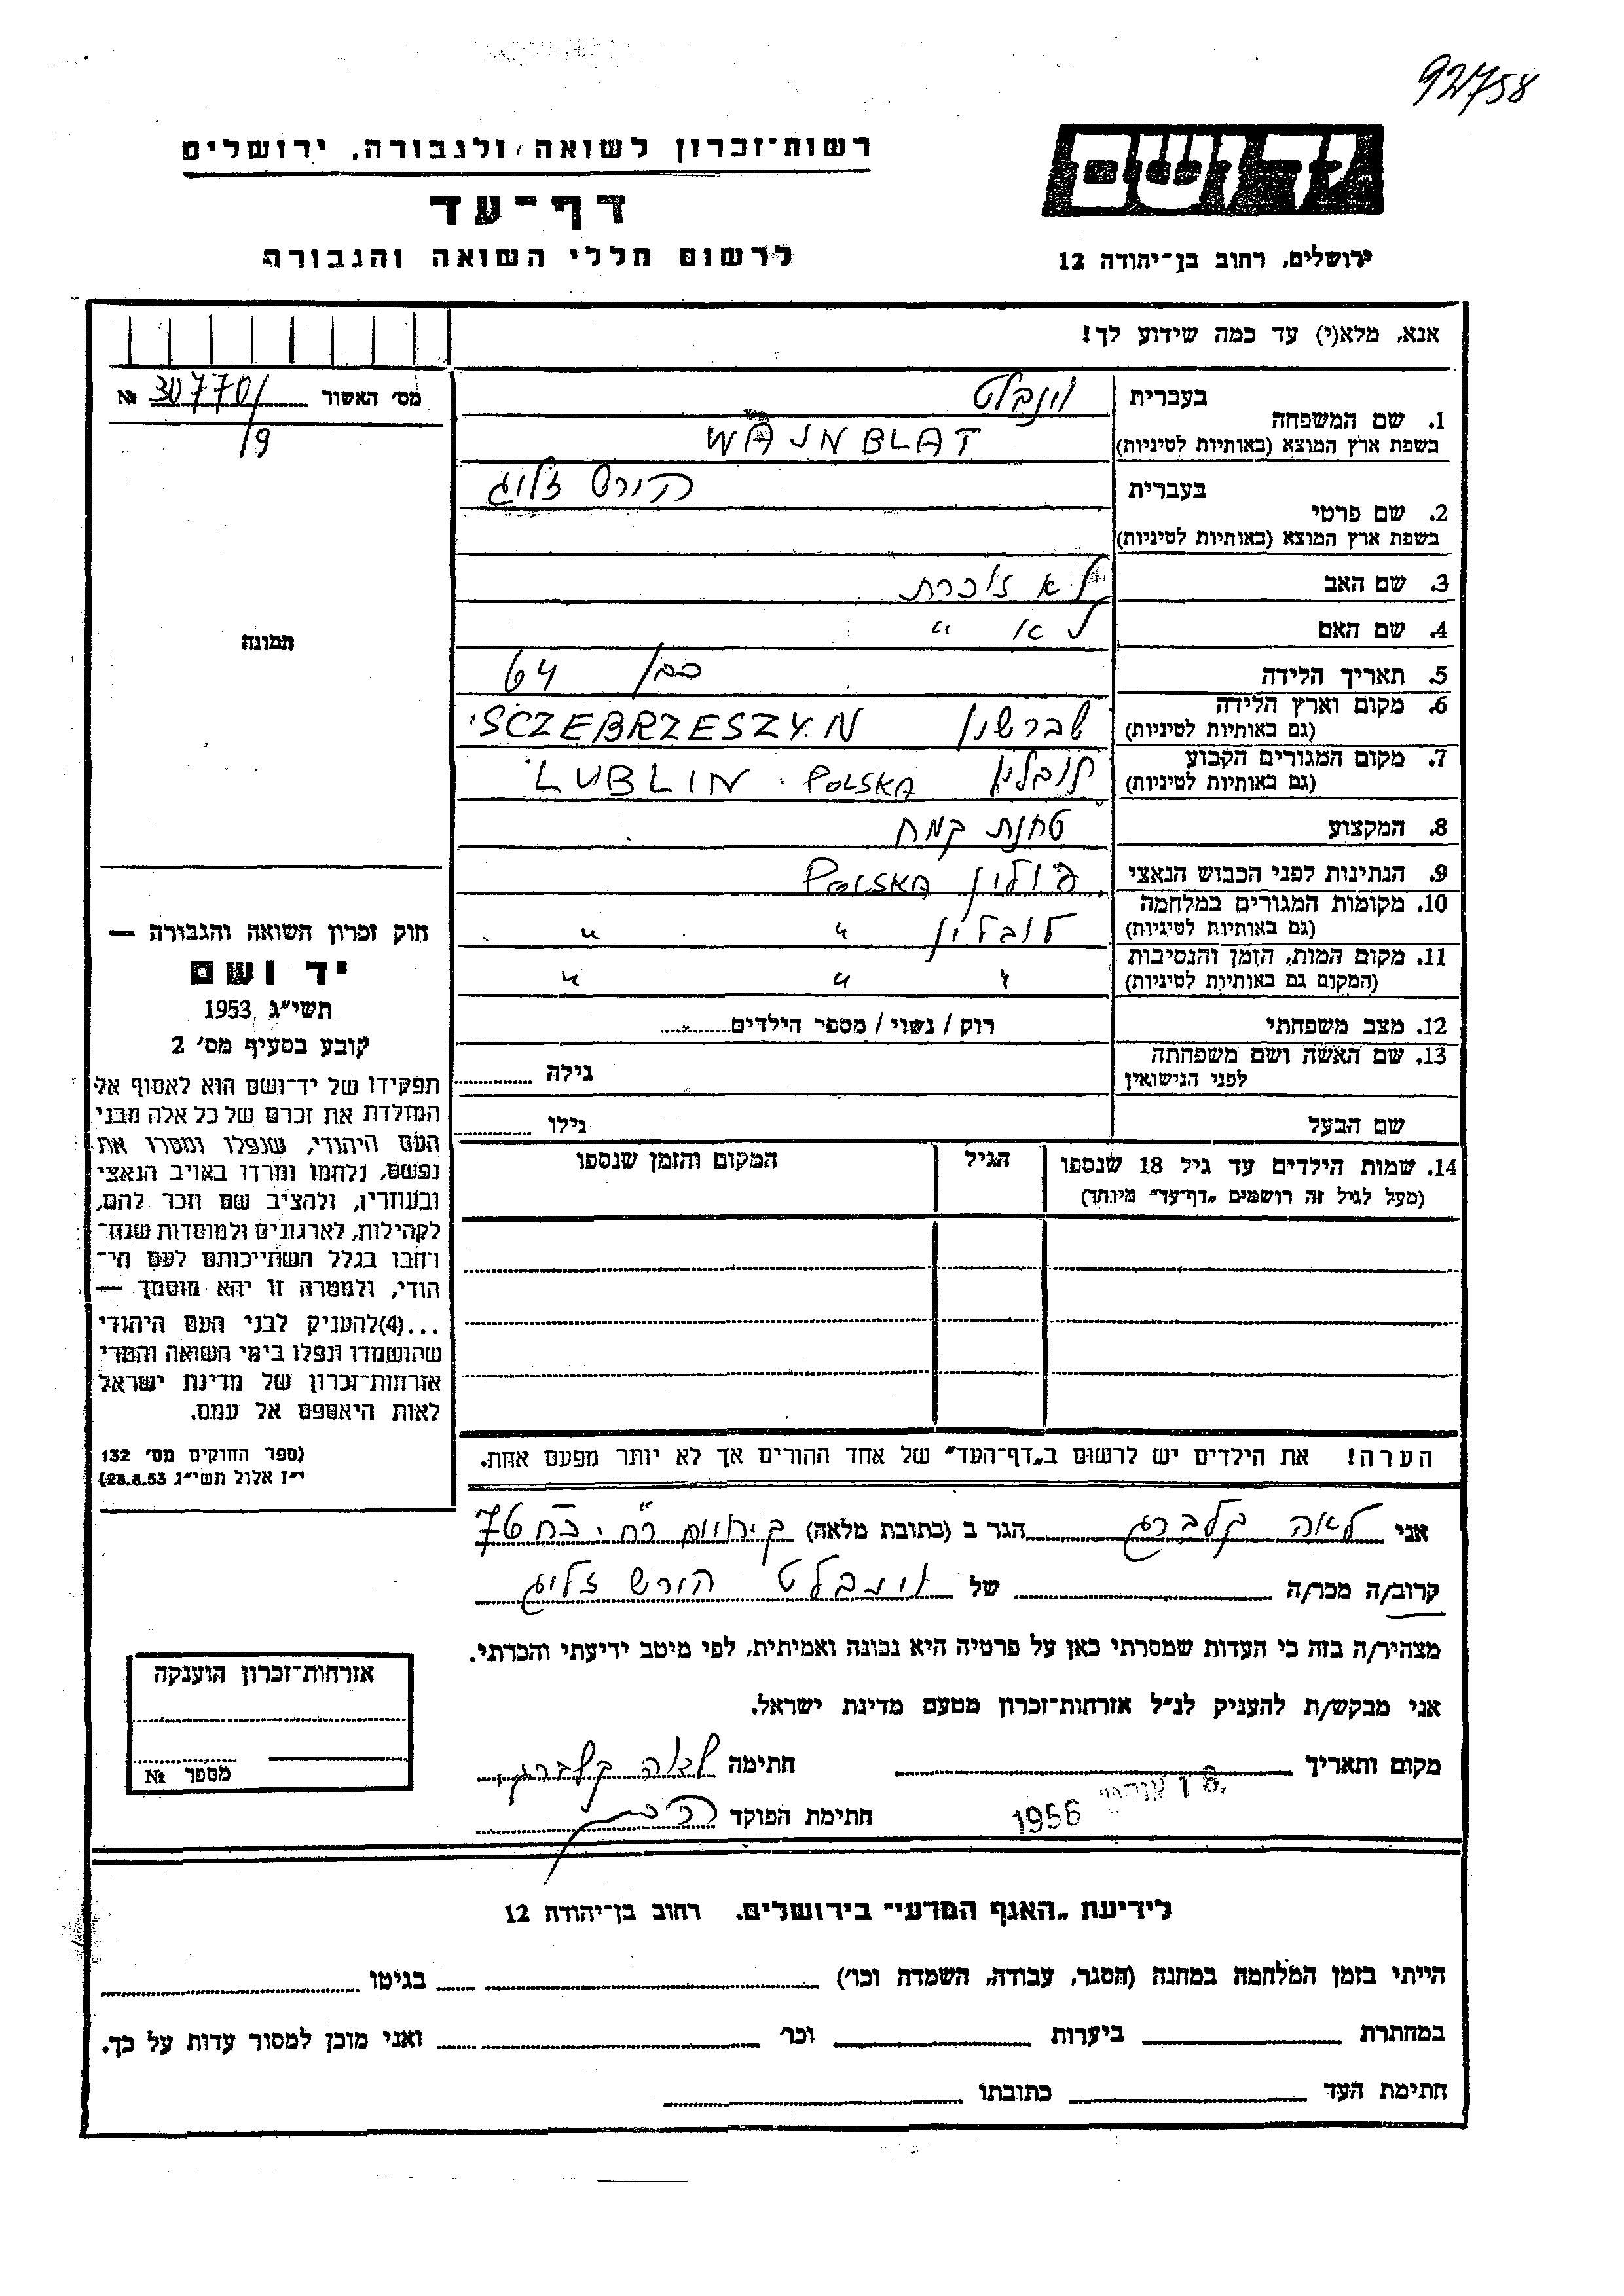 92758
רשות־זכרון לשואה ולגבורה, ירושלים
דף־עד
לרשום חללי השואה והגבורה
יד ושם
ירושלים, רחוב בן־יהודה 12
אנא, מלא(י) עד כמה שידוע לך!
מס׳ האשור 307701 №
/9
תמונה
1. שם המשפחה
בעברית וינבלט
בשפת ארץ המוצא (באותיות לטיניות) WAJNBLAT
2. שם פרטי
בעברית הורש זליג
בשפת ארץ המוצא (באותיות לטיניות)
3. שם האב לא זוכרת
4. שם האם לא "
5. תאריך הלידה כבן 64
6. מקום וארץ הלידה שברשין SCZEBRZESZYN
(גם באותיות לטיניות)
7. מקום המגורים הקבוע לובלין LUBLIN. POLSKA
(גם באותיות לטיניות)
8. המקצוע טחנת קמח
9. הנתינות לפני הכבוש הנאצי פולין POLSKA
10. מקומות המגורים במלחמה לובלין " "
(גם באותיות לטיניות)
11. מקום המות, הזמן והנסיבות " " "
(המקום גם באותיות לטיניות)
12. מצב משפחתי רוק / נשוי / מספר הילדים
13. שם האשה ושם משפחתה
לפני הנישואין גילה
שם הבעל גילו
14. שמות הילדים עד גיל 18 שנספו הגיל המקום והזמן שנספו
(מעל לגיל זה רושמים „דף־עד״ מיוחד)
חוק זכרון השואה והגבורה —
יד ושם
תשי״ג 1953
קובע בסעיף מס׳ 2
תפקידו של יד־ושם הוא לאסוף אל
המולדת את זכרם של כל אלה מבני
העם היהודי, שנפלו ומסרו את
נפשם, נלחמו ומרדו באויב הנאצי
ובעוזריו, ולהציב שם וזכר להם,
לקהילות, לארגונים ולמוסדות שנח־
רחבו בגלל השתייכותם לעם הי־
הודי, ולמטרה זו יהא מוסמך —
...(4)להעניק לבני העם היהודי
שהושמדו ונפלו בימי השואה והמרי
אזרחות־זכרון של מדינת ישראל
לאות היאספם אל עמם.
(ספר החוקים מס׳ 132
י״ז אלול תשי״ג 28.8.53)
הערה! את הילדים יש לרשום ב„דף־העד״ של אחד ההורים אך לא יותר מפעם אחת.
אני לאה קלברג הגר ב (כתובת מלאה)
קרוב/ה מכר/ה של וינבלט הורש זליג
מצהיר/ה בזה כי העדות שמסרתי כאן על פרטיה היא נכונה ואמיתית, לפי מיטב ידיעתי והכרתי.
אני מבקש/ת להעניק לנ״ל אזרחות־זכרון מטעם מדינת ישראל.
מקום ותאריך חתימה לאה קלברג
18 1956
חתימת הפוקד
אזרחות־זכרון הוענקה
מספר №
לידיעת „האגף המדעי״ בירושלים. רחוב בן־יהודה 12
הייתי בזמן המלחמה במחנה (הסגר, עבודה, השמדה וכו׳) בגיטו
במחתרת ביערות וכו׳ ואני מוכן למסור עדות על כך.
חתימת העד כתובתו